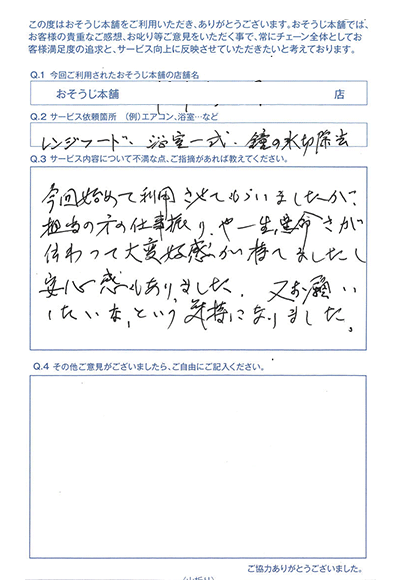 この度はおそうじ本舗をご利用いただき、ありがとうございます。おそうじ本舗では、
お客様の貴重なご感想、お叱り等ご意見をいただく事で、常にチェーン全体としてお
客様満足度の追求と、サービス向上に反映させていただきたいと考えております。
Q.1 今回ご利用されたおそうじ本舗の店舗名
おそうじ本舗 店
Q.2 サービス依頼箇所 （例）エアコン、浴室…など
レンジフード、浴室一式、鐘の水切除去
Q.3 サービス内容について不満な点、ご指摘があれば教えてください。
今回始めて利用させてもらいましたが、
担当の方の仕事振り、や一生懸命さが
伝わって大変好感が持てましたし
安心感もありました。又お願い
したいな、という気持になりました。
Q.4 その他ご意見がございましたら、ご自由にご記入ください。
ご協力ありがとうございました。